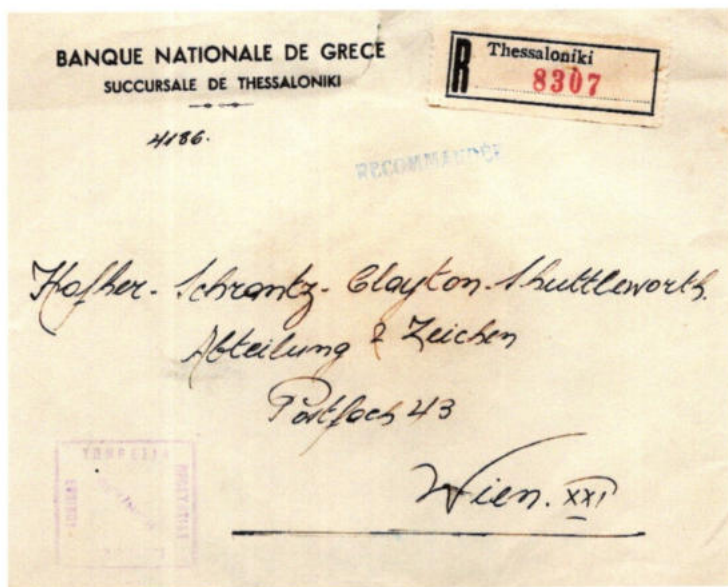 BANQUE NATIONALE DE GRECE
SUCCURSALE DE THESSALONIKI
R Thessaloniki
8307
4186.
RECOMMANDÉE
Hofher-Schrantz-Clayton-Shuttleworth.
Abteilung 2 Zeichen
Postfach 43
Wien. XXI